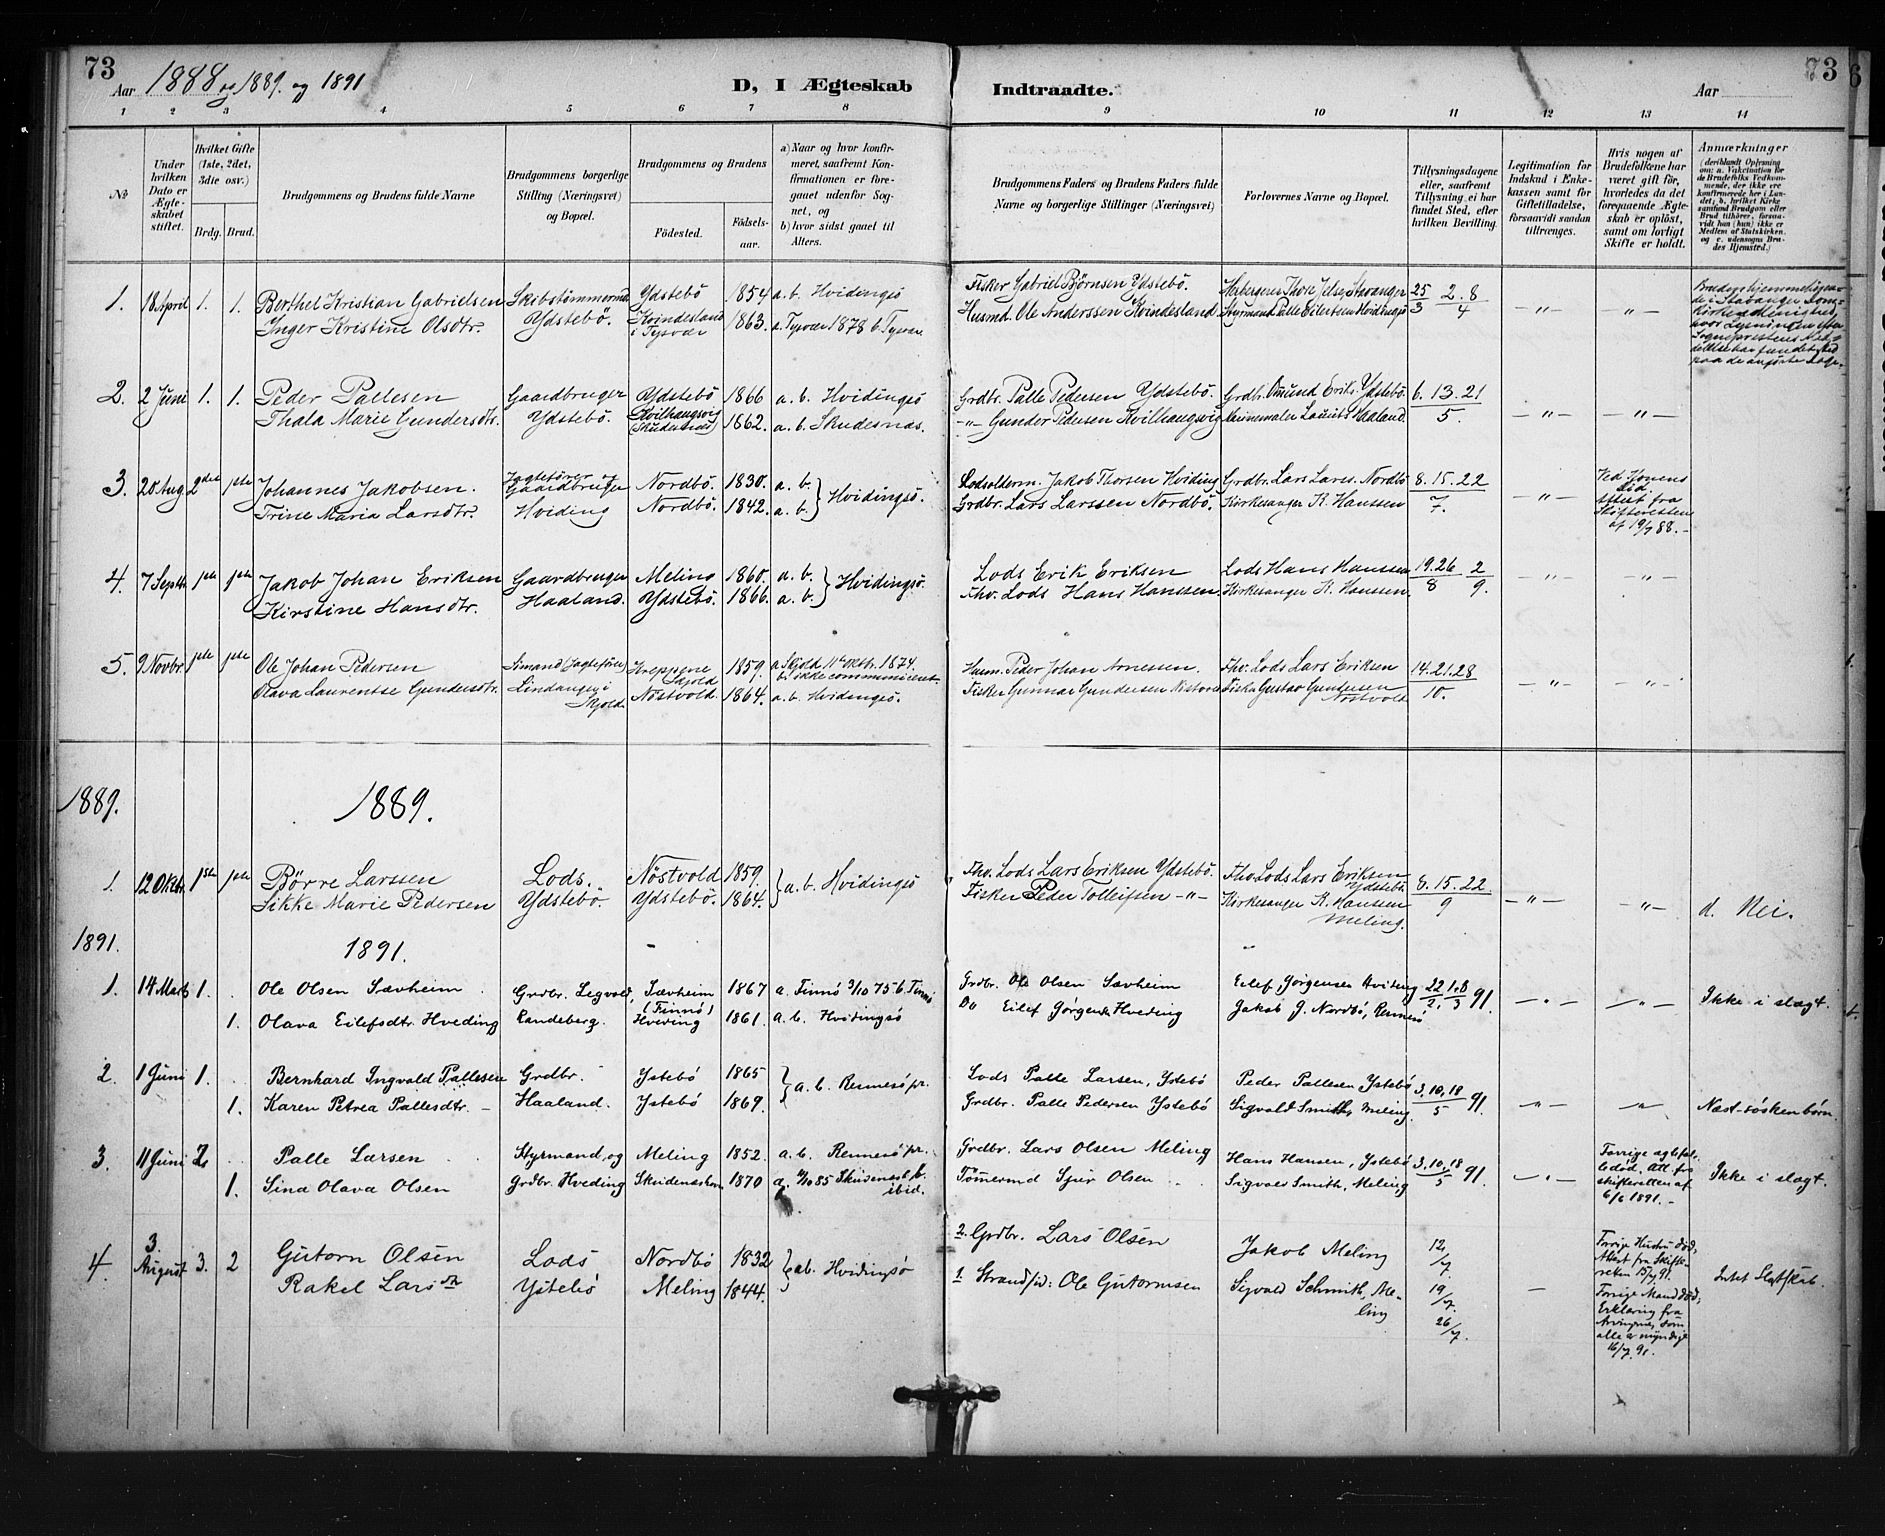 73
Aar 1888 og 1889. og 1891
D, I Ægteskab Indtraadte.
Aar
73
1 2 3 4 5 6 7 8 9 10 11 12 13 14
№
Under hvilken Dato er Ægteskabet stiftet.
Hvilket Gifte (1ste, 2det, 3die osv.)
Brdg. Brud.
Brudgommens og Brudens fulde Navne
Brudgommens borgerlige Stilling (Næringsvei) og Bopæl.
Brudgommens og Brudens
Fødested.
Fødselsaar.
a) Naar og hvor konfirmeret, saafremt Konfirmationen er foregaaet udenfor Sognet, og
b) hvor sidst gaaet til Alters.
Brudgommens Faders og Brudens Faders fulde Navne og borgerlige Stillinger (Næringsvei)
Forlovernes Navne og Bopæl.
Tillysningsdagene eller, saafremt Tillysning ei har fundet Sted, efter hvilken Bevilling.
Legitimation for Indskud i Enkekassen samt for Giftetilladelse, forsaavidt saadan tiltrænges.
Hvis nogen af Brudefolkene har været gift før, hvorledes da det foregaaende Ægteskab er opløst, samt om lovligt Skifte er holdt.
Anmærkninger (deriblandt Oplysning om: a. Vakcination for de Brudefolks Vedkommende, der ikke ere konfirmerede her i Landet; b. hvilket Kirkesamfund Brudgom eller Brud tilhører, forsaavidt han (hun) ikke er Medlem af Statskirken. og c. udensogns Brudes Hjemsted.)
1. 18 April 1. 1. Berthel Kristian Gabrielsen Skibstömmermd Ydstebö 1854 a. b. Hvidingsö Fisker Gabriel Björnsen Ydstebö. Thore Jelse, Stavanger 25/3 2. 8/4 -"- -"-
Inger Kristine Olsdtr. Ydstebö. Hvindesland i Tysvær 1863. a. Tysvær 1878 b. Tysvær Husmd. Ole Anderssen Hvindesland Styrmand Palle Eilertsen Hvidingsö
2. 2 Juni 1. 1. Peder Pallesen Gaardbruger Ydstebö 1866 a. b. Hvidingsö Grdbr. Palle Pedersen Ydstebö Grdb. Omund Eriks. Ydstebö. 6. 13. 21/5. -"- -"-
Thala Marie Gundersdtr. Ydstebö. (Skudesnæs) 1862. a. b. Skudesnæs. -"- Gunder Pedersen Laurits Haaland.
3. 20 Aug 2det 1ste Johannes Jakobsen. Jagtefører og Gaardbruger Nordbö. 1830. a. b. } Hvidingsö. Lodsolderm. Jakob Thorsen Hviding Grdbr. Lars Lars. Nordbö 8. 15. 22/7. -"- Ved Konens Død Attest fra Skifteretten af 19/7 88.-
Trine Maria Larsdtr. Hviding Nordbö. 1842. a. b. Grdbr. Lars Larssen Nordbö. Kirkesanger K. Hanssen
4. 7 Septbr 1ste 1ste Jakob Johan Eriksen Gaardbruger Meling 1860. a. b. } Hvidingsö. Lods Erik Eriksen Lods Hans Hanssen 19. 26/8 2/9. -"- -"-
Kirstine Hansdtr. Haaland. Ydstebö. 1866. a. b. Fhv. Lods Hans Hanssen Kirkesanger K. Hanssen.
5. 9 Novbr. 1ste 1ste Ole Johan Pedersen Sömand (Jagtefører) Skjold 1859. a. Skjold 11te Oktbr. 1874. b. ikke communiceret. Husm. Peder Johan Arnessen. Fhv. Lods Lars Eriksen 14. 21. 28/10. -"- -"-
Olava Laurentse Gundersdtr. Lindanger i Skjold. Nöstvold. 1864. a. b. Hvidingsö. Fisker Gunnar Gundersen Fisker Gustav Gundersen Nöstvold
1889.
1889.
1. 12 Oktbr. 1ste 1ste Börre Larssen Lods. Nöstvold 1859. } a. b. Hvidingsö Fhv. Lods Lars Eriksen Ydstebö. Fhv Lods Lars Eriksen Ydstebö. 8. 15. 22./9 -"- -"- d. Nei.
Sikke Marie Pedersen Ydstebö. Ydstebö. 1864. Fisker Peder Tolleifsen -"- Kirkesanger K. Hanssen Meling.
1891.
1891.
1. 14 Marts 1. Ole Olsen Sævheim Grdbr. Legvold, Sævheim (Finnö) 1867 a. Finnö 3/10 75 b. Finnö Grdbr. Ole Olsen Sævheim Eilef Jörgensen Hviding 22/2. 1. 8/3 91. -"- -"- Ikke i slægt.
1. Olava Eilefsdtr. Hveding Randeberg. Hveding 1861. a. b. Hvidingsö Do Eilef Jörgens. Hveding Jakob J. Nordbö, Rennesö
2. 1 Juni 1. Bernhard Ingvald Pallesen Grdbr. Ystebö 1865 } a. b. Rennesö pr. Lods Palle Larsen, Ystebö Peder Pallesen Ystebö 3. 10. 18/5 91. -"- -"- Næst-söskenbörn.
1. Karen Petrea Pallesdtr. Haaland. Ystebö 1869. Grdbr. Palle Pedersen Ystebö Sigvald Smith, Meling.
3. 11 Juni 2. Palle Larsen Styrmand og Meling 1852. a. b. Rennesö pr. Grdbr. Lars Olsen Meling Hans Hansen, Ystebö 3. 10. 18/5 91. -"- Forrige ægtefæl. död. Att. fra skifteretten af 6/6 1891.- Ikke i slægt.
1. Sina Olava Olsen Grdbr. Hveding Skudeneshavn 1870 a. 4/10 85 Skudenesh. b. ibid. Tömermd Sjur Olsen Sigvald Smith, Meling
4. 3. August 3. 2 Gutorn Olsen Lods Nordbö 1832 } ab. Hvidingsö 2. Grdbr. Lars Olsen Jakob Meling 12/7. - Forrige Hustru död, Attest fra Skifteretten 15/7 91. Intet Slægtskab.
Rakel Larsdtr Ystebö Meling 1844. 1 Strandsid: Ole Gutormsen Sigvald Schmith, Meling 19/7. 26/7. Forrige Mand död, Erklæring fra Arvingene, som alle er myndige 16/7. 91.